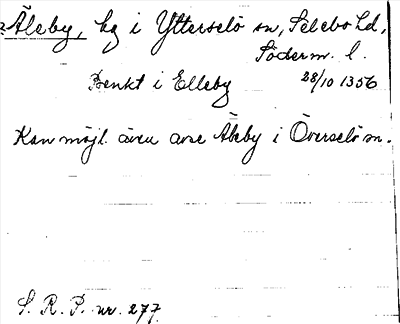 ?Äleby, by i Ytterselö sn, Selebo hd,
Söderm. l.
Benkt i Elleby 28/10 1356
Kan möjl. även avse Åleby i Överselö sn.
S. R. P. nr. 277.